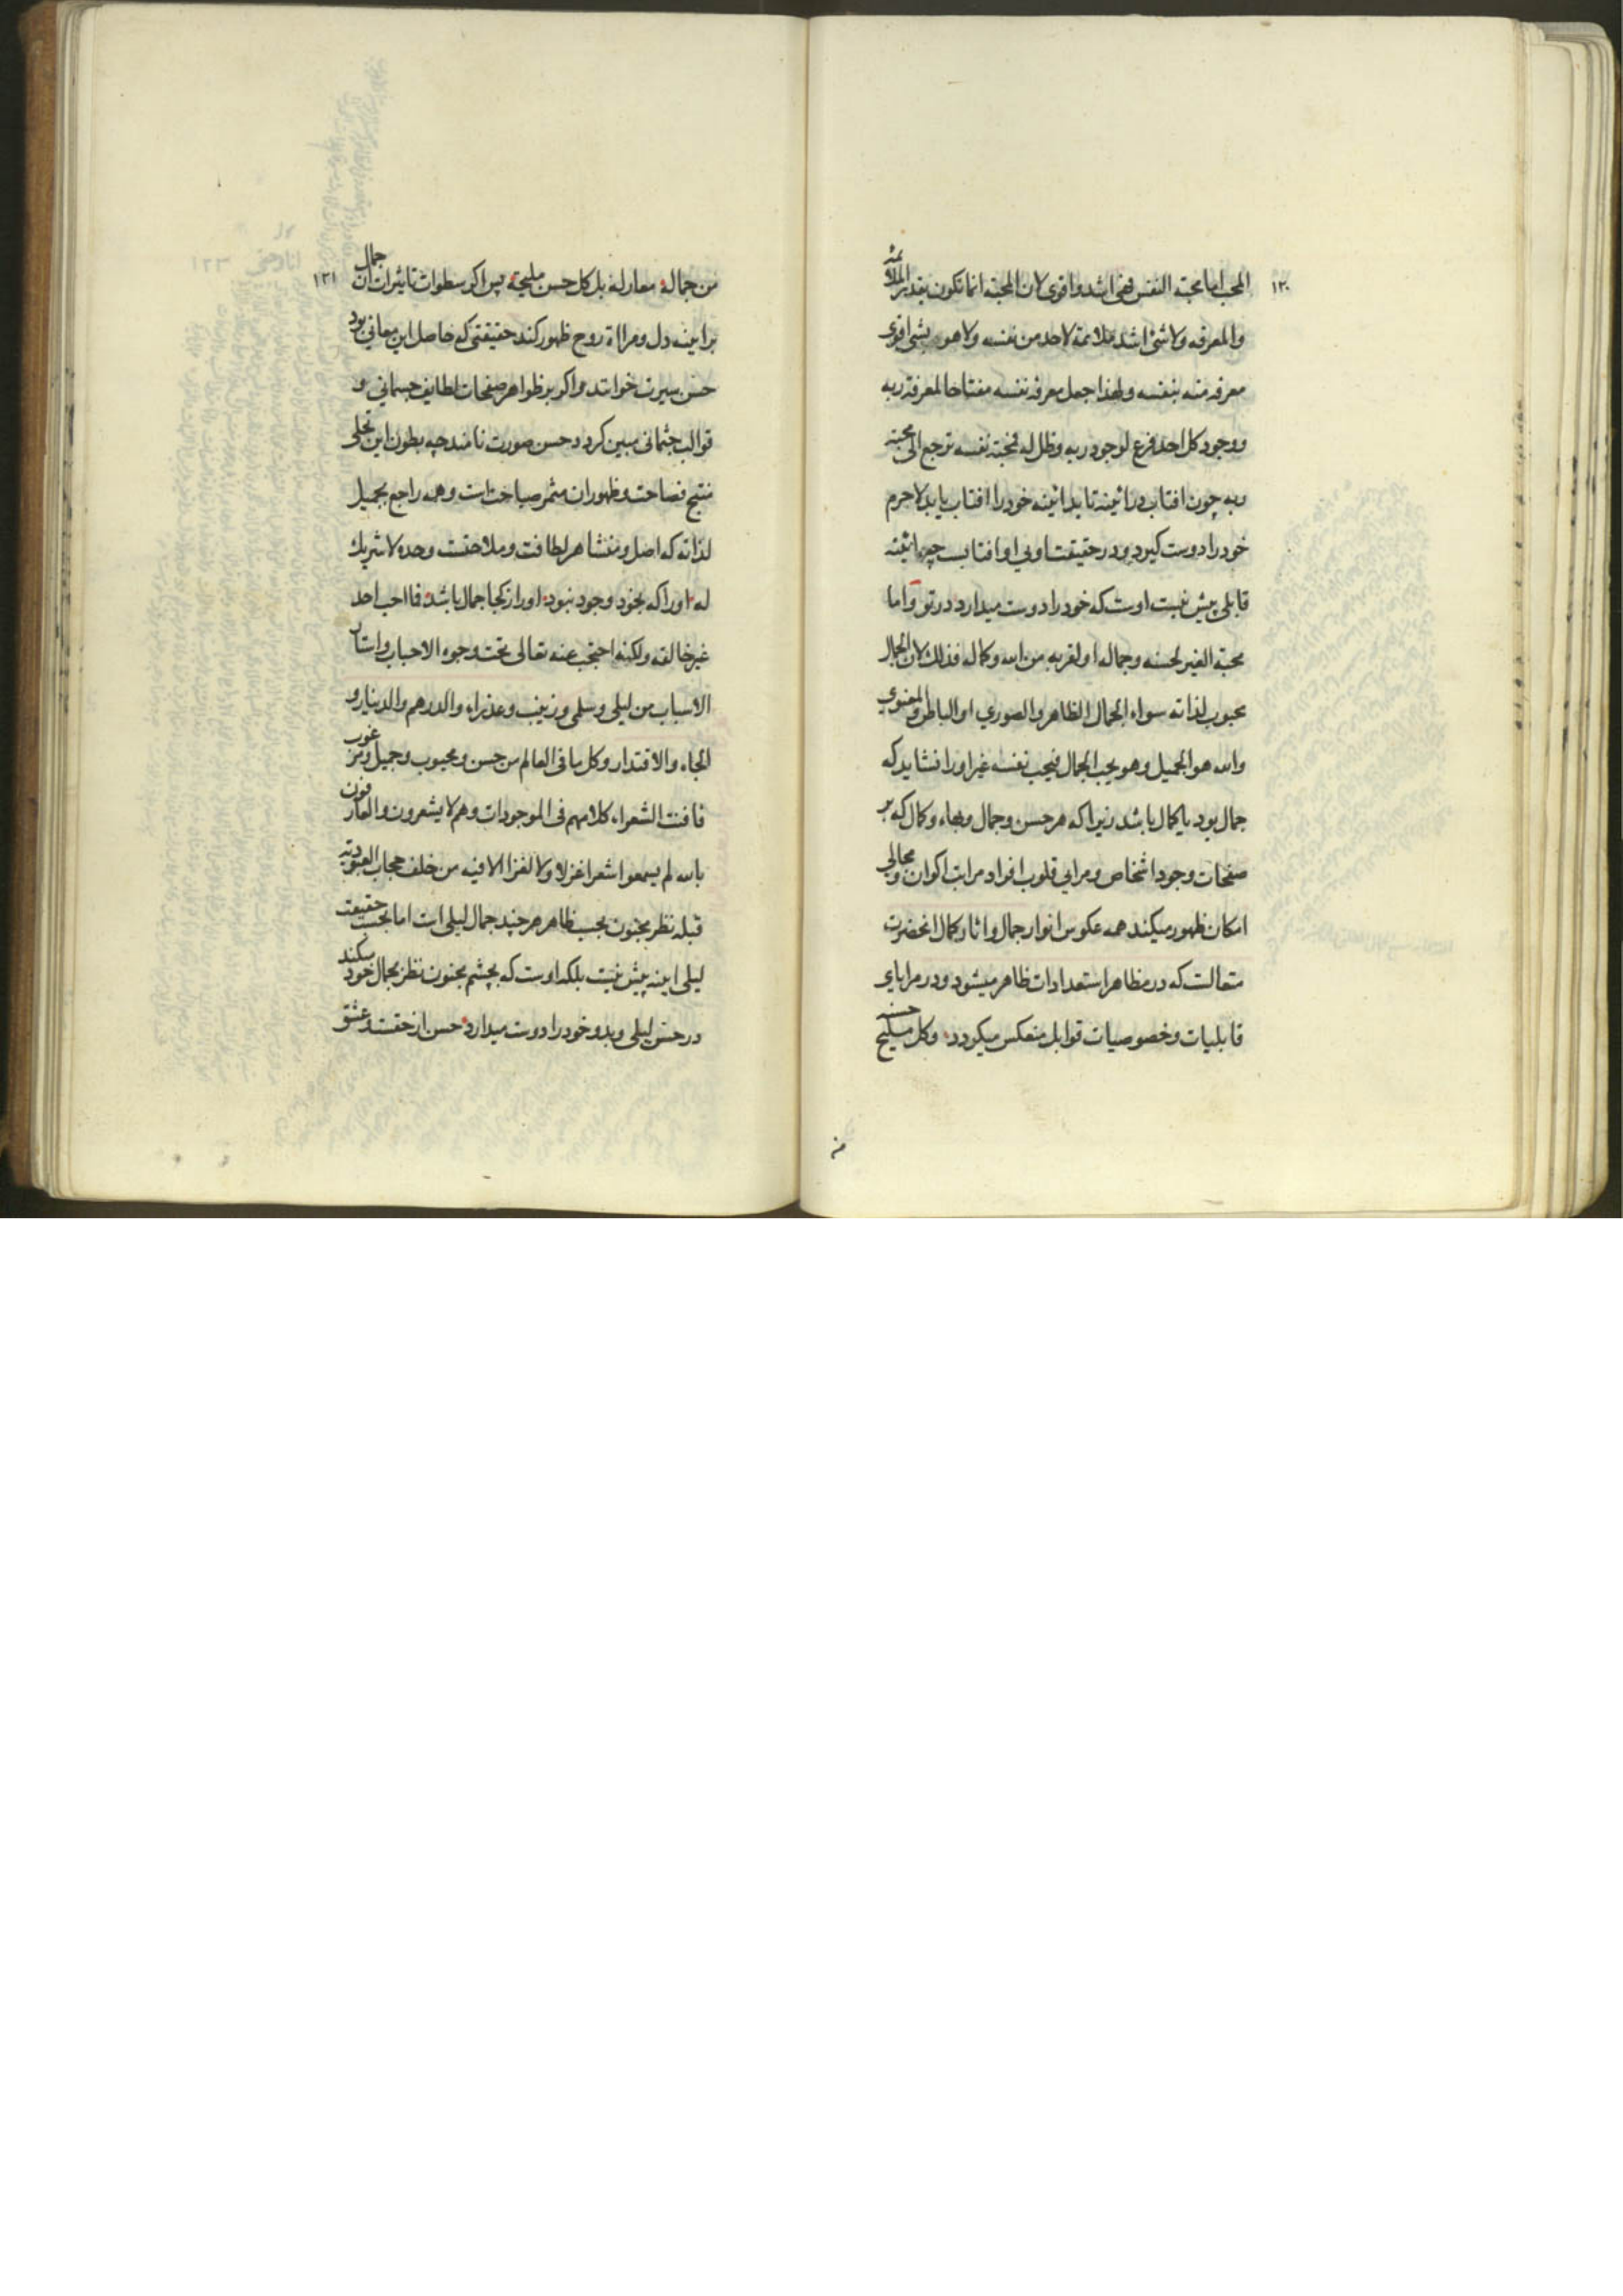 ١٣٠
المحب اما محبته النفس فهی اشد واقوی لان المحبة انما تکون بقدر الملائمة
والمعرفه ولا شئ اشد ملائمة لاحد من نفسه ولا هو بشئ اقوی
معرفه منه بنفسه ولهذا جعل معرفة نفسه مفتاحا لمعرفة ربه
ووجود کل احد فرع لوجود ربه وظل له فمحبته نفسه ترجع الی محبته
ربه چون افتاب در ائینه تابد ائینه خود را افتاب یابد لاجرم
خود را دوست کیرد ودر حقیقت اوبی او افتابست چه ائینه
قابلی بیش نیست اوست که خود را دوست میدارد در تو واما
محبة الغیر لحسنه وجماله او لقربه من الله وکماله فذلک لان الجمال
محبوب لذاته سواء الجمال الظاهر والصوری او الباطن والمعنوی
والله هو الجمیل وهو یحب الجمال فیحب نفسه غیر اورا نشاید که
جمال بود یا کمال باشد زیرا که هر حسن وجمال وبهاء وکمال که بر
صفحات وجود اشخاص ومرایی قلوب افراد مراتب اکوان ومجالی
امکان ظهور میکند همه عکوس انوار جمال واثار کمال انحضرت
متعالست که در مظاهر استعدادات ظاهر میشود ودر مرایای
قابلیات وخصوصیات قوابل منعکس میکردد وکل ملیح حسنه
من
١٣١
من جماله معار له بل کل حسن ملیحة پس اکر سطوات تاثیرات ان جمال
بر اینه دل ومراة روح ظهور کند حقیقتی که حاصل این معانی بود
حسن سیرت خوانند واکر بر ظواهر صفحات لطایف جسمانی و
قوالب جثمانی مبین کردد حسن صورت نامند چه بطون این تجلی
منتج فصاحت وظهور ان مثمر صباحت است وهمه راجع بجمیل
لذاته که اصل ومنشا هر لطافت وملاحتست وحده لا شریک
له اورا که بخود وجود نبود اورا زکجا جمال باشد فما احب احد
غیر خالقه ولکنه احتجب عنه تعالی تحت وجوه الاحباب واستار
الاسباب من لیلی وسلمی وزینب وعذراء والدرهم والدینار و
الجاه والاقتدار وکل ما فی العالم من حسن ومحبوب وجمیل ومرغوب
فافنت الشعراء کلامهم فی الموجودات وهم لا یشعرون والعارفون
بالله لم یسمعوا شعرا غزلا ولا لغزا الا فیه من خلف حجاب العبودیة
قبله نظر مجنون بحسب ظاهر هر چند جمال لیلی است اما بحسب حقیقت
لیلی اینه بیش نیست بلکه اوست که بچشم مجنون نظر بجمال خود میکند
در حسن لیلی وبدو خود را دوست میدارد حسن از حقست وعشق